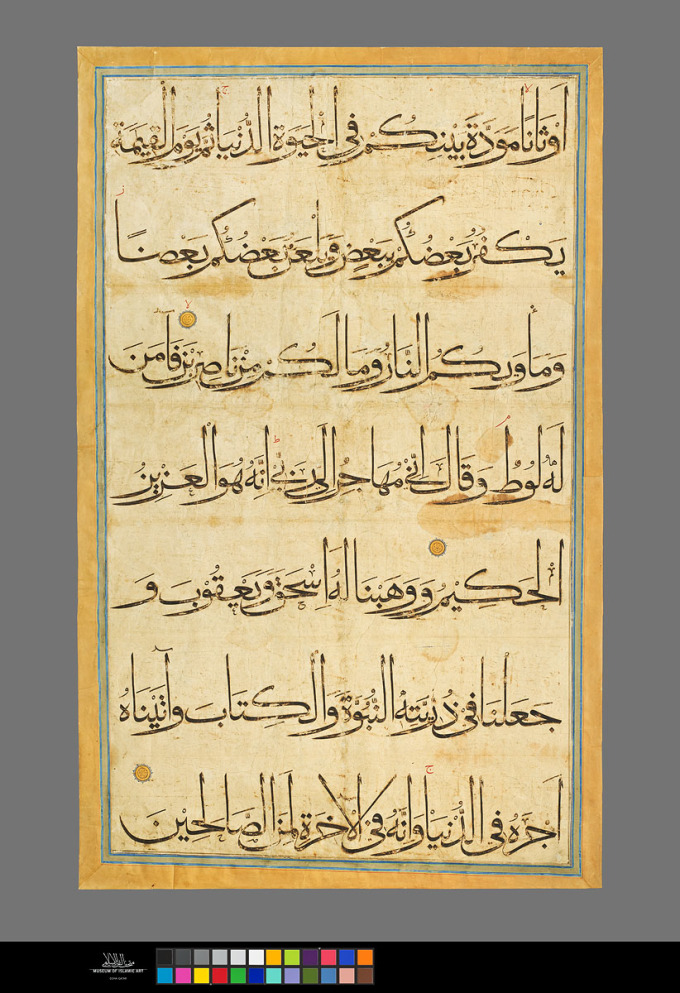 أَوْثَانًا مَوَدَّةَ بَيْنِكُمْ فِي الْحَيٰوةِ الدُّنْيَا ثُمَّ يَوْمَ الْقِيٰمَةِ
يَكْفُرُ بَعْضُكُمْ بِبَعْضٍ وَيَلْعَنُ بَعْضُكُمْ بَعْضًا
وَمَأْوٰىكُمُ النَّارُ وَمَا لَكُمْ مِنْ نَاصِرِينَ فَآمَنَ
لَهُ لُوطٌ وَقَالَ إِنِّي مُهَاجِرٌ إِلَىٰ رَبِّي إِنَّهُ هُوَ الْعَزِيزُ
الْحَكِيمُ وَوَهَبْنَا لَهُ إِسْحٰقَ وَيَعْقُوبَ وَ
جَعَلْنَا فِي ذُرِّيَّتِهِ النُّبُوَّةَ وَالْكِتَابَ وَآتَيْنَاهُ
أَجْرَهُ فِي الدُّنْيَا وَإِنَّهُ فِي الْآخِرَةِ لَمِنَ الصَّالِحِينَ
متحف الفن الإسلامي
MUSEUM OF ISLAMIC ART
DOHA QATAR